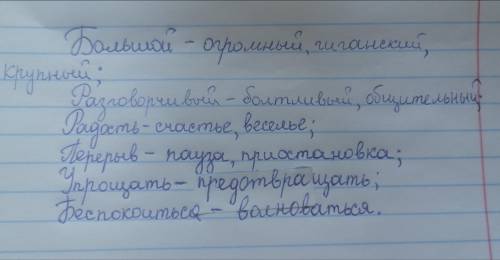 Большой – огромный, гиганский,
крупный;
Разговорчивый – болтливый, общительный;
Радость – счастье, веселье;
Перерыв – пауза, приостановка;
Упрощать – предотвращать;
Беспокоиться – волноваться.